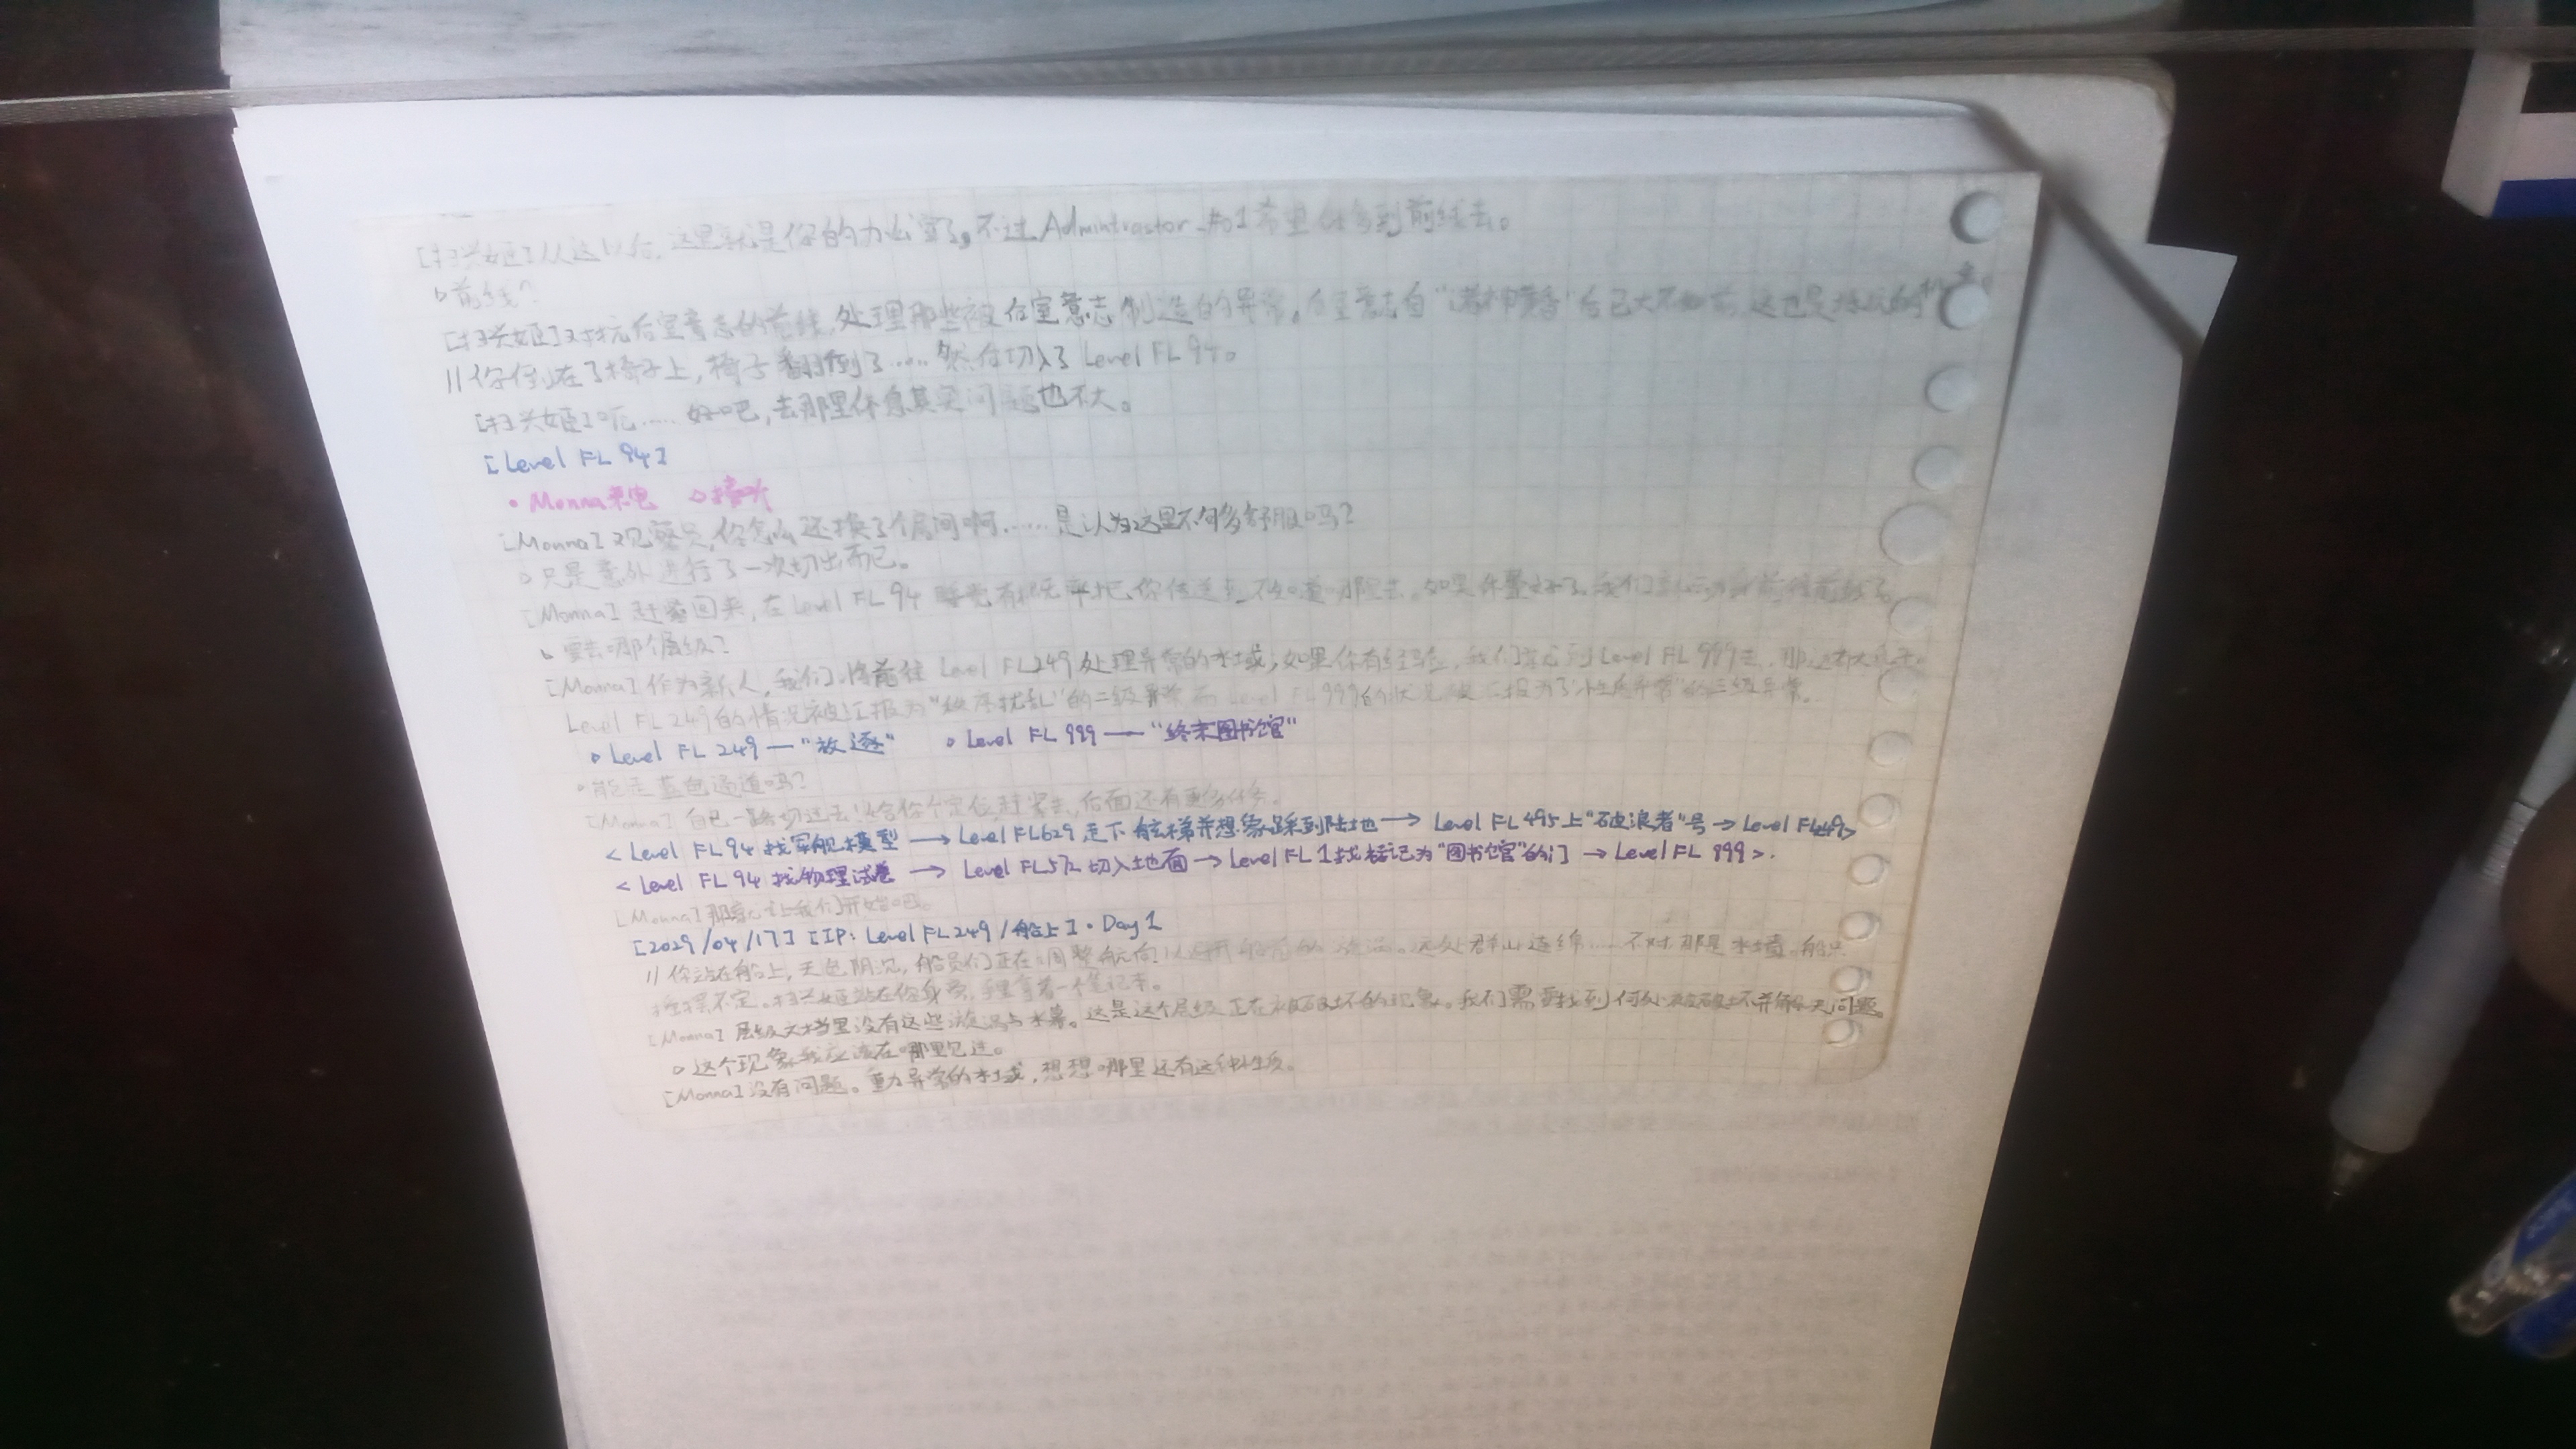 [扫兴姬]从这以后,这里就是你的办公室了。不过Admintrastor-#01希望你多到前线去。
▷前线?
[扫兴姬]对抗后室意志的前线,处理那些被后室意志制造的异常。后室意志自“诸神黄昏”后已大不如前,这也是抵抗的
//你倒在了椅子上,椅子翻倒了……然后切入了Level FL 94。
[扫兴姬]呃……好吧,去那里休息其实问题也不大。
[Level FL 94]
·Monna来电 ▷接听
[Monna]观察员,你怎么还换了个房间啊……是认为这里不够舒服吗?
▷只是意外进行了一次切出而已。
[Monna]赶紧回来,在Level FL 94睡觉有概率把你传送到不知道哪里去。如果休整好了,我们就动身前往前线了。
▷要去哪个层级?
[Monna]作为新人,我们将前往Level FL249处理异常的水域;如果你有经验,我们就到Level FL 999去,那
Level FL 249的情况被汇报为“秩序扰乱”的二级异常而Level FL999的状况被汇报为了“性质异常”的三级异常。
▷Level FL 249—“放逐” ▷Level FL 999—“终末图书馆”
▷能走蓝色通道吗?
[Monna]自己一路切过去!给你个定位,赶紧去,后面还有更多任务。
<Level FL 94 找军舰模型→Level FL629 走下舷梯并想象踩到陆地→Level FL 495上“破浪者”号→Level FL249>
<Level FL 94 找物理试卷→Level FL572切入地面→Level FL 1找标记为“图书馆”的门→Level FL 999>.
[Monna]那就让我们开始吧。
[2029/04/17] [IP: Level FL249/船上]·Day1
//你站在船上,天色阴沉,船员们正在调整航向以避开船前的漩涡。远处群山连绵……不对,那是水墙。船只
摇摆不定。扫兴姬站在你身旁,手里拿着一个笔记本。
[Monna]层级文档里没有这些漩涡与水幕。这是这个层级正在被破坏的现象。我们需要找到何处被破坏并解决问题。
▷这个现象我应该在哪里见过。
[Monna]没有问题。重力异常的水域,想想哪里还有这种性质。